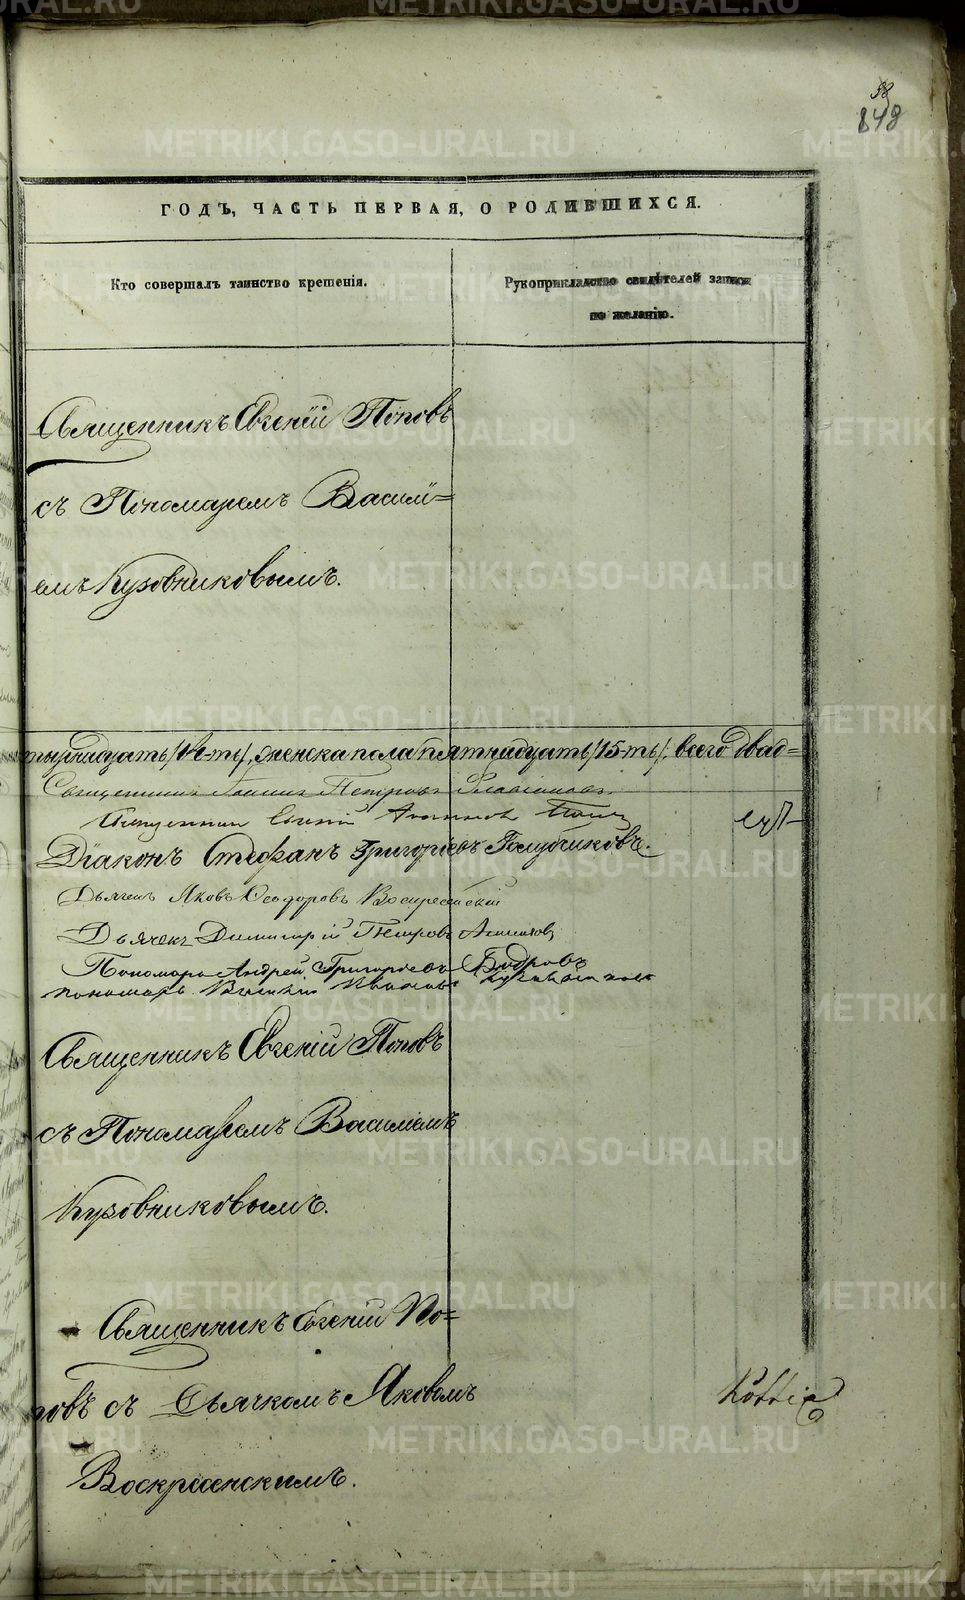 58
848
ГОДЪ, ЧАСТЬ ПЕРВАЯ, О РОДИВШИХСЯ.
Кто совершалъ таинство крещенія.
Рукоприкладство свидѣтелей записи
по желанію.
Священникъ Евгеній Поповъ
съ Пономаремъ Василі=
емъ Кузовниковымъ.
женска пола пятнадцать /15-ть/, всего двад=
Священникъ Іоаннъ Петровъ
Священник Евгений Попов
Діаконъ Стефанъ Григорьевъ Голубчиковъ.
Дьячекъ Яковъ Феодоровъ Воскресенскій
Дьячекъ Димитрій Петровъ
Пономарь Андрей Григорьевъ Бодровъ
пономарь Василий Иванов
Священникъ Евгеній Поповъ
съ Пономаремъ Василіемъ
Кузовниковымъ.
Священникъ Евгеній По=
повъ съ Дьячкомъ Яковомъ
Воскресенскимъ.
METRIKI.GASO-URAL.RU